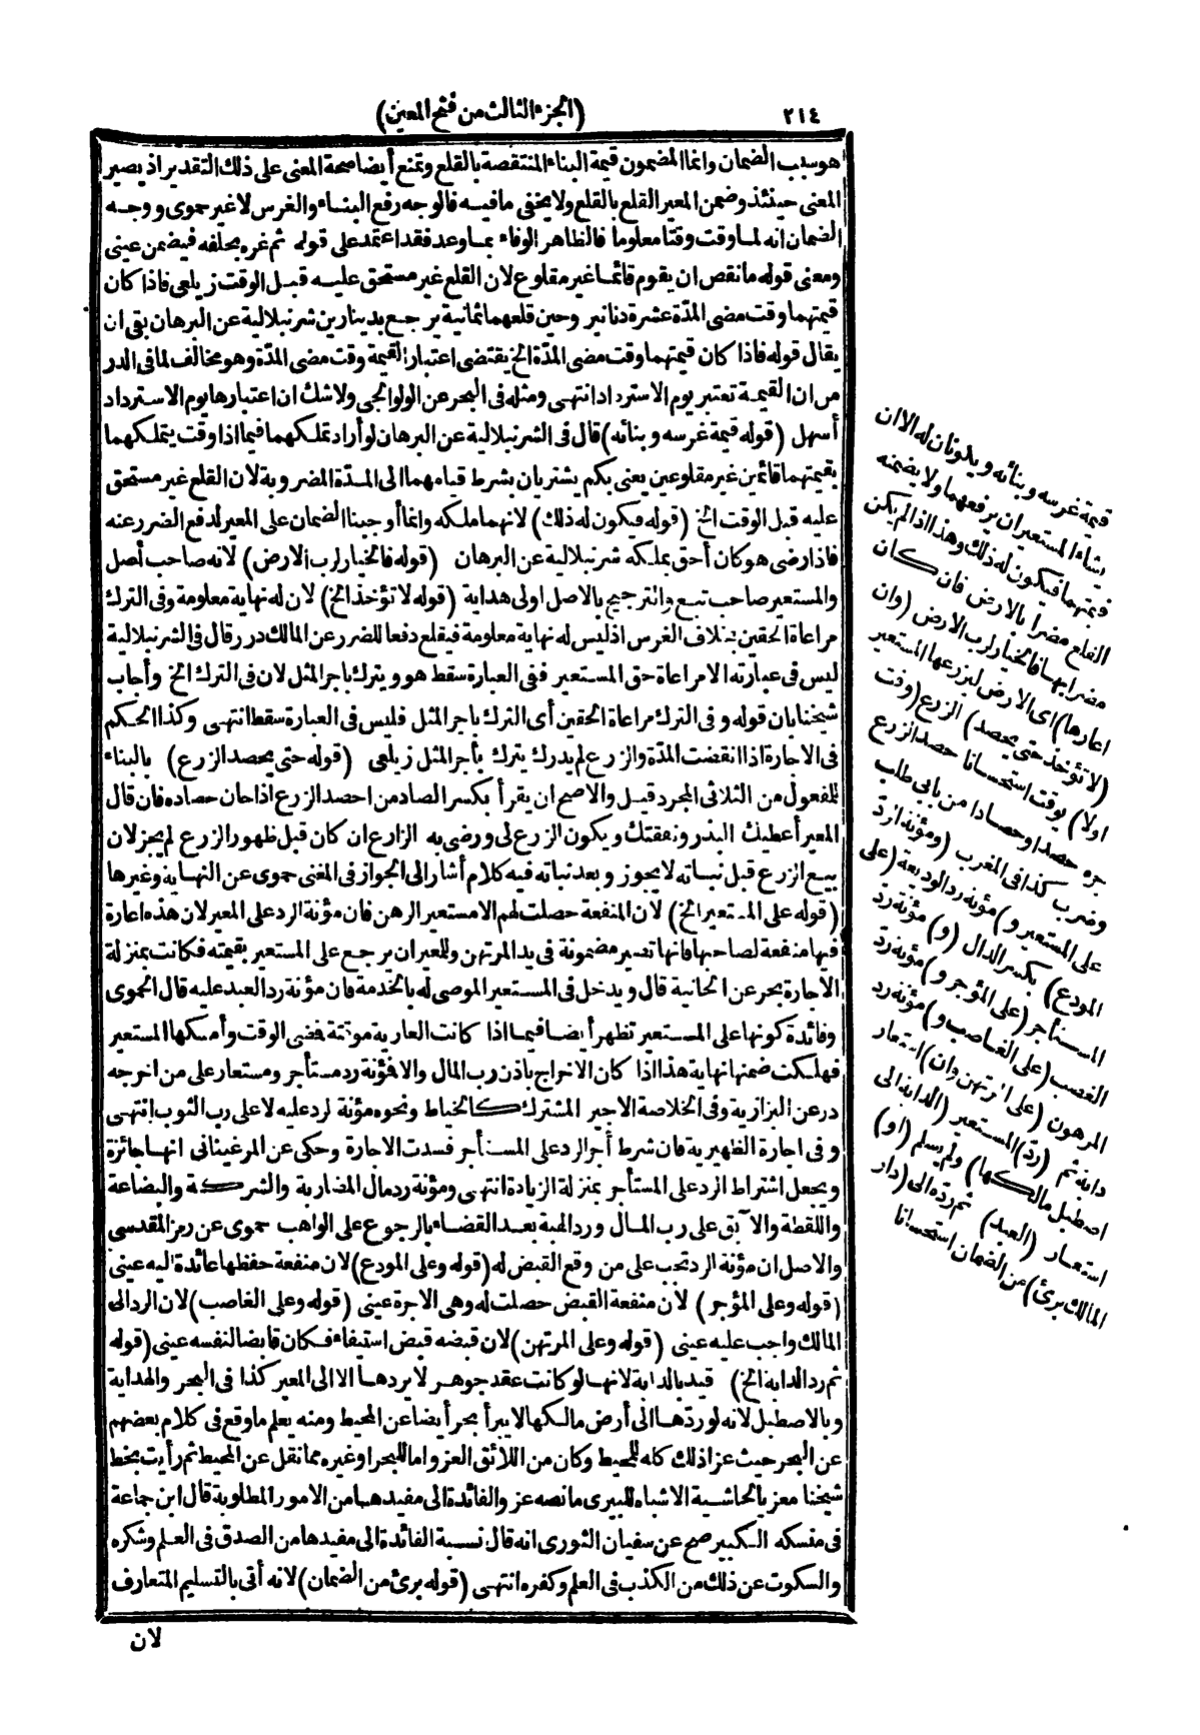 ٢١٤
(الجزء الثالث من فتح المعين)
هو سبب الضمان وانما المضمون قيمة البناء المنتقصة بالقلع وتمنع أيضا صحة المعنى على ذلك التقدير اذ يصير
المعنى حينئذ وضمن المعير القلع بالقلع ولا يخفى ما فيه فالوجه رفع البناء والغرس لا غير حموى ووجه
الضمان انه لما وقت وقتا معلوما فالظاهر الوفاء بما وعد فقد اعتمد على قوله ثم غره بخلفه فيضمن عينى
ومعنى قوله ما نقص ان يقوم قائما غير مقلوع لان القلع غير مستحق عليه قبل الوقت زيلعى فاذا كان
قيمتهما وقت مضى المدّة عشرة دنانير وحين قلعهما ثمانية يرجع بدينارين شرنبلالية عن البرهان بقى ان
يقال قوله فاذا كان قيمتهما وقت مضى المدّة الخ يقتضى اعتبار القيمة وقت مضى المدّة وهو مخالف لما فى الدر
من ان القيمة تعتبر يوم الاسترداد انتهى ومثله فى البحر عن الولوالجى ولا شك ان اعتبارها يوم الاسترداد
أسهل (قوله قيمة غرسه وبنائه) قال فى الشرنبلالية عن البرهان لو أراد تملكهما فيما اذا وقت يتملكهما
بقيمتهما قائمين غير مقلوعين يعنى بكم يشتريان بشرط قيامهما الى المدّة المضروبة لان القلع غير مستحق
عليه قبل الوقت الخ (قوله فيكون له ذلك) لانهما ملكه وانما أوجبنا الضمان على المعير لدفع الضرر عنه
فاذا رضى هو كان أحق بملكه شرنبلالية عن البرهان (قوله فالخيار لرب الارض) لانه صاحب أصل
والمستعير صاحب تبع والترجيح بالاصل اولى هداية (قوله لا تؤخذ الخ) لان له نهاية معلومة وفى الترك
مراعاة الحقين بخلاف الغرس اذ ليس له نهاية معلومة فيقلع دفعا للضرر عن المالك درر قال فى الشرنبلالية
ليس فى عبارته الا مراعاة حق المستعير ففى العبارة سقط هو ويترك باجر المثل لان فى الترك الخ وأجاب
شيخنا بان قوله وفى الترك مراعاة الحقين أى الترك باجر المثل فليس فى العبارة سقط انتهى وكذا الحكم
فى الاجارة اذا انقضت المدّة والزرع لم يدرك يترك بأجر المثل زيلعى (قوله حتى يحصد الزرع) بالبناء
للمفعول من الثلاثى المجرد قيل والاصح ان يقرأ بكسر الصاد من احصد الزرع اذا حان حصاده فان قال
المعير أعطيك البذر ونفقتك ويكون الزرع لى ورضى به الزارع ان كان قبل ظهور الزرع لم يجز لان
بيع الزرع قبل نباته لا يجوز وبعد نباته فيه كلام أشار الى الجواز فى المغنى حموى عن النهاية وغيرها
(قوله على المستعير الخ) لان المنفعة حصلت لهم الا مستعير الرهن فان مؤنة الرد على المعير لان هذه اعارة
فيها منفعة لصاحبها فانها تصير مضمونة فى يد المرتهن وللمعير ان يرجع على المستعير بقيمته فكانت بمنزلة
الاجارة بحر عن الخانية قال ويدخل فى المستعير الموصى له بالخدمة فان مؤنة رد العبد عليه قال الحموى
وفائدة كونها على المستعير تظهر أيضا فيما اذا كانت العارية موقتة فمضى الوقت وأمسكها المستعير
فهلكت ضمنها نهاية هذا اذا كان الاخراج باذن رب المال والا فؤنة رد مستأجر ومستعار على من اخرجه
در عن البزازية وفى الخلاصة الاجير المشترك كالخياط ونحوه مؤنة لرد عليه لا على رب الثوب انتهى
وفى اجارة الظهيرية فان شرط أجر الرد على المستأجر فسدت الاجارة وحكى عن المرغينانى انها جائزة
ويجعل اشتراط الرد على المستأجر بمنزلة الزيادة انتهى ومؤنة رد مال المضاربة والشركة والبضاعة
واللقطة والآبق على رب المال ورد الهبة بعد القضاء بالرجوع على الواهب حموى عن رمز المقدسى
والاصل ان مؤنة الرد تجب على من وقع القبض له (قوله وعلى المودع) لان منفعة حفظها عائدة اليه عينى
(قوله وعلى المؤجر) لان منفعة القبض حصلت له وهى الاجرة عينى (قوله وعلى الغاصب) لان الرد الى
المالك واجب عليه عينى (قوله وعلى المرتهن) لان قبضه قبض استيفاء فكان قابضا لنفسه عينى (قوله
ثم رد الدابة الخ) قيد بالدابة لانها لو كانت عقد جوهر لا يردها الا الى المعير كذا فى البحر والهداية
وبالاصطبل لانه لو ردّها الى أرض مالكها لا يبرأ بحر أيضا عن المحيط ومنه يعلم ما وقع فى كلام بعضهم
عن البحر حيث عزا ذلك كله للمحيط وكان من اللائق العزو اما للبحر او غيره مما نقل عن المحيط ثم رأيت بخط
شيخنا معزيا لحاشية الاشباه للبيرى ما نصه عز والفائدة الى مفيدها من الامور المطلوبة قال ابن جماعة
فى منسكه الكبير صح عن سفيان الثورى انه قال نسبة الفائدة الى مفيدها من الصدق فى العلم وشكره
والسكوت عن ذلك من الكذب فى العلم وكفره انتهى (قوله برئ من الضمان) لانه أتى بالتسليم المتعارف
لان
قيمة غرسه وبنائه ويكونان له الا ان
يشاء المستعير ان يرفعهما ولا يضمنه
قيمتهما فيكون له ذلك وهذا اذا لم يكن
القلع مضرا بالارض فان كان
مضرا بها فالخيار لرب الارض (وان
اعارها) اى الارض ليزرعها المستعير
(لا تؤخذ حتى يحصد) الزرع (وقت
اولا) يوقت استحسانا حصد الزرع
جزه حصدا وحصادا من بابى طلب
وضرب كذا فى المغرب (ومؤنة الردّ
على المستعير و) مؤنة رد الوديعة (على
المودع) بكسر الدال (و) مؤنة ردّ
المستأجر (على المؤجر و) مؤنة ردّ
الغصب (على الغاصب و) مؤنة رد
المرهون (على المرتهن وان) استعار
دابة ثم (ردّ) المستعير (الدابة الى
اصطبل مالكها) ولم يسلم (او)
استعار (العبد) ثم ردّه الى (دار
المالك برئ) عن الضمان استحسانا